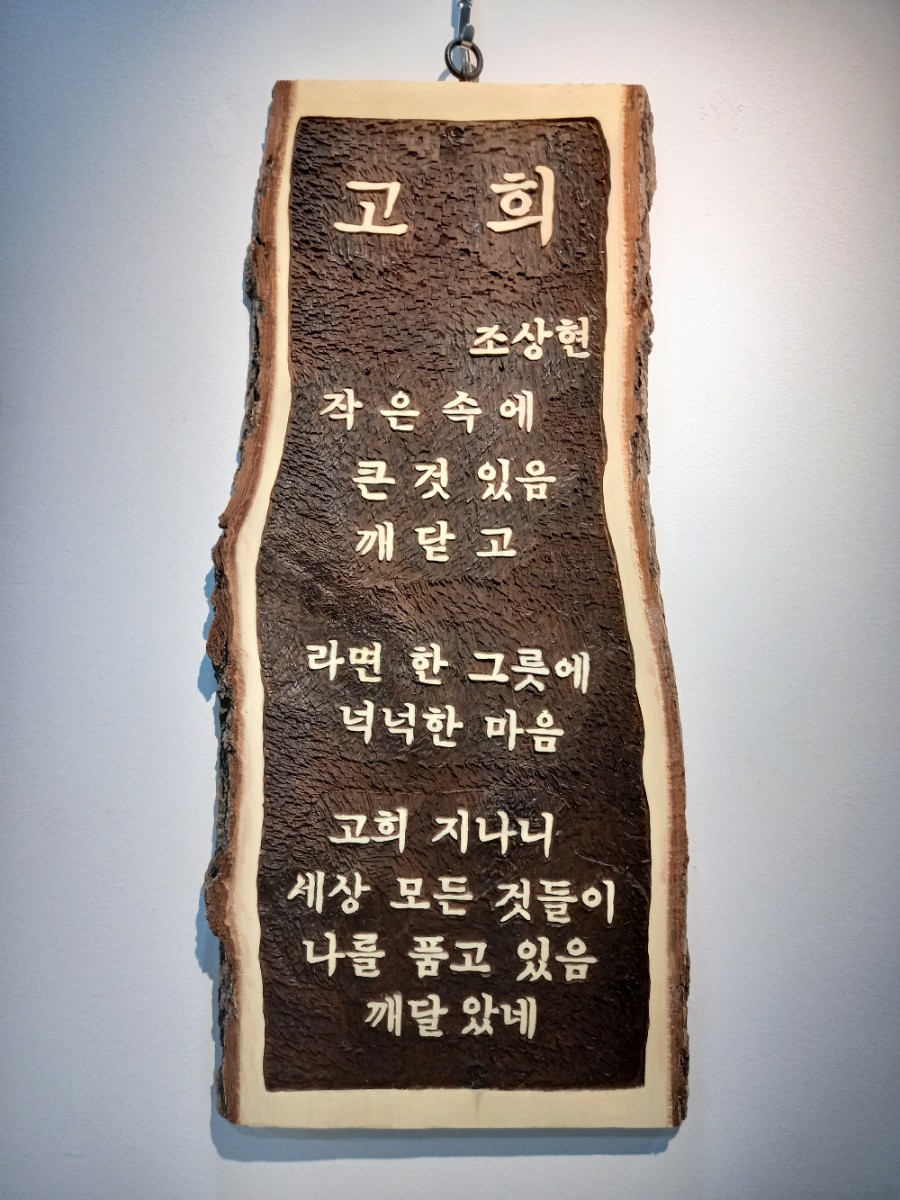 고 희
조상현
작은 속에
큰 것 있음
깨닫고
라면 한 그릇에
넉넉한 마음
고희 지나니
세상 모든 것들이
나를 품고 있음
깨달았네